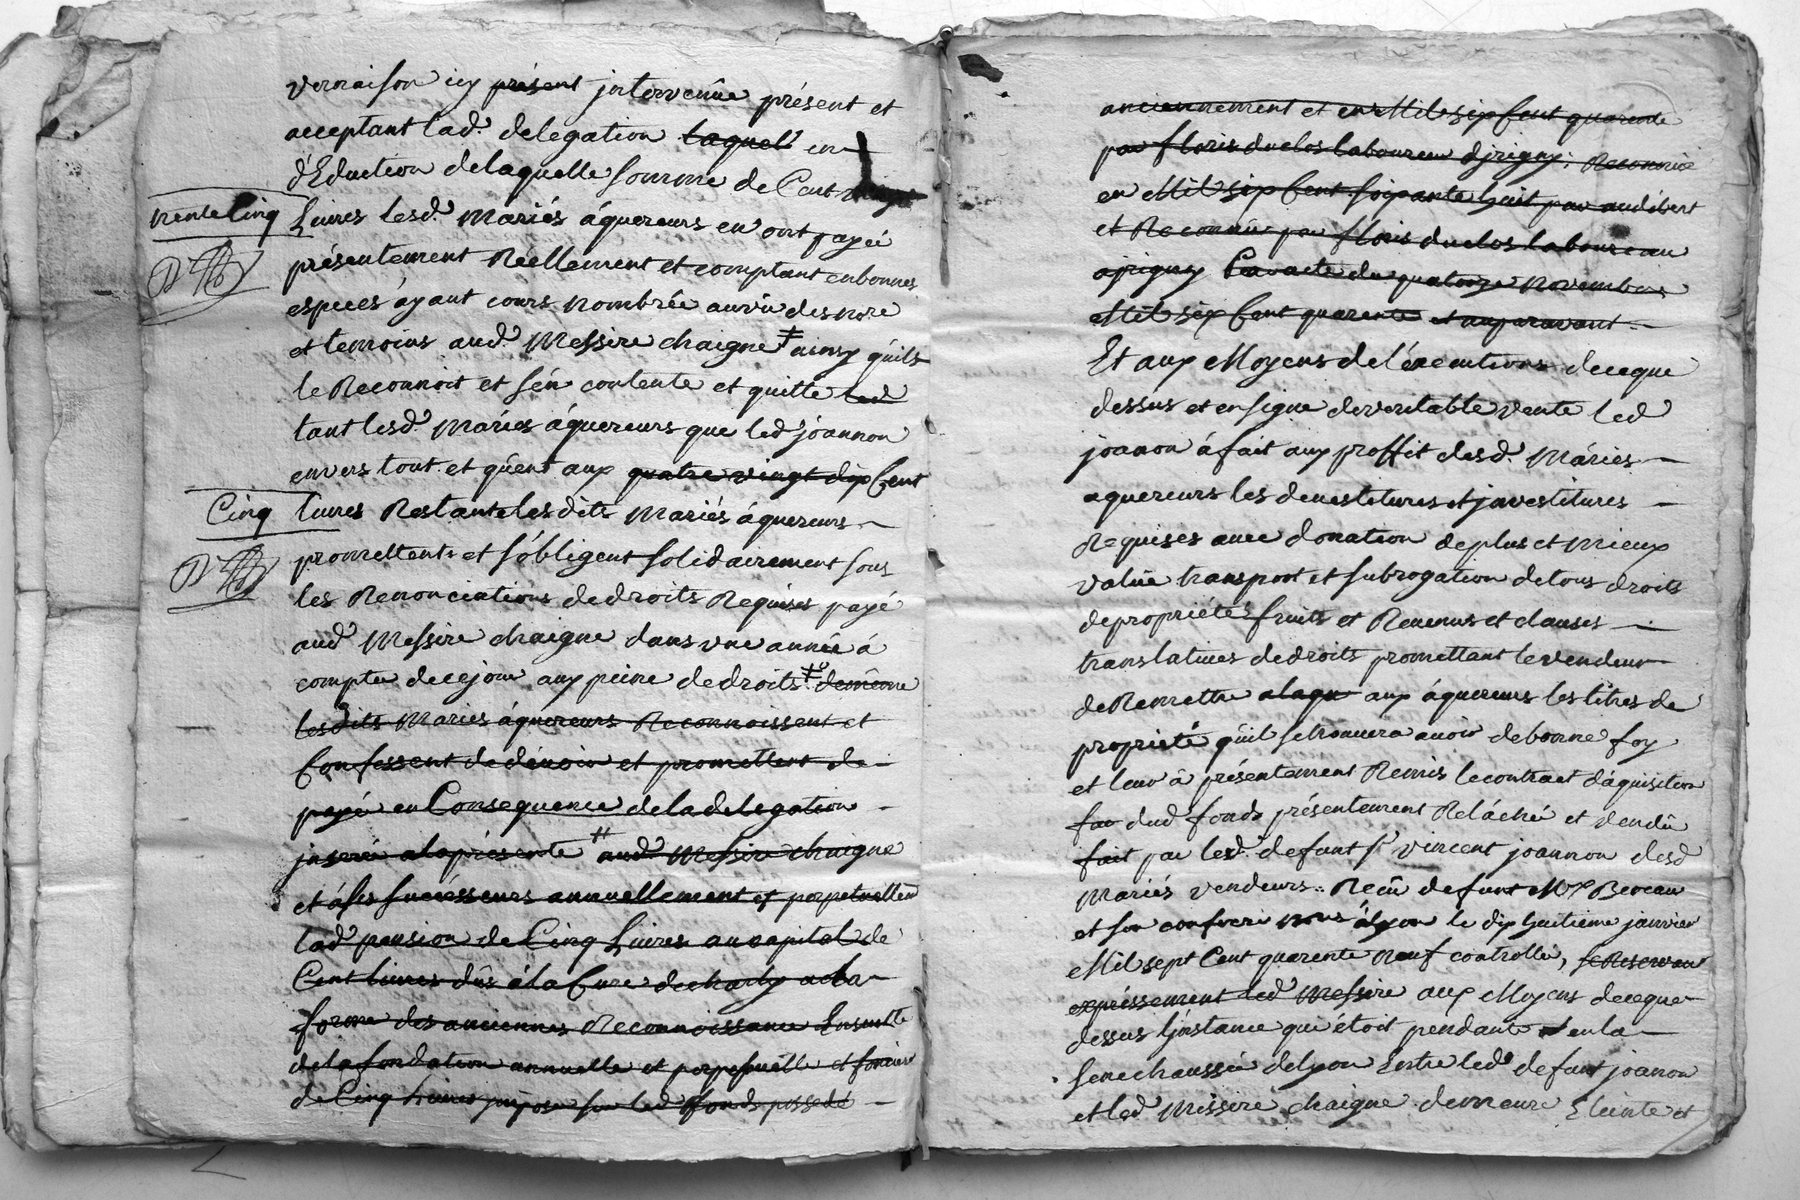 vernaison icy présent jntervenûe présent et
acceptant lad. delegation laquel en
d'Eduction de laquelle somme de Cent vingt
trente Cinq Livres lesd. Mariés áquereurs en ont payé
présentement Réellement et comptant en bonnes
especes áyant cours nombrée au vû des nore
et temoins aud. Messire chaigne ainsy quils
le Reconnoit et s'én contente et quitte led
tant lesd. Mariés áquereurs que led joannon
envers tout et qûent aux quatre vingt dix Cent
Cinq livres Restante lesdits Mariés áquereurs
promettent et s'óbligent solidairement sous
les Renonciations de droits Requises payé
aud Messire chaigne dans une année á
compter de cejour aux peine de droits de même
lesdits Mariés áquereurs Reconnoissent et
Confessent de dévoir et promettent de
payé en Consequence de la delegation
jnserée a la présente aud Messire chaigne
et áses sucésseurs annuellement et perpetuellem
lad pension de Cinq Livres au capital de
Cent livres dûs á la Cure de charly a la
forme des anciennes Reconnoissance Ensuitte
de la fondation annuelle et perpetuélle et fonciere
de Cinq Livres jmposée sur led fonds possedé
anciennement et en Mil six Cent quarente
par floris duclos laboureur djrigny; Reconnüe
en Mil six Cent soixante huit par audibert
et Reconnüe par floris duclos laboureau
ajrigny Par acte du quatorze Novembre
Mil six Cent quarente et auparavant
Et aux Moyens de l'éxecutions de ce que
dessus et en signe de veritable vente led
joanon á fait aux proffit desd. Máriés
aquereurs les devestitures et jnvestitures
Requises avec donation de plus et mieux
valüe transport et subrogation de tous droits
de propriétés fruits et Revenus et clauses
translatives de droits promettant le vendeur
de Remettre alaqu aux áquereurs les titres de
proprieté qûil se trouvera avoir de bonne foy
et leur à présentement Remis le contract dáquisition
fai dud fonds présentement Reláché et vendû
fait par led. defunt sr vincent joannon desd
Mariés vendeurs. Recû defunt Me Bereau
et son confrere nores á Lyon le dix huitieme janvier
Mil sept Cent quarente Neuf controllé, se Reservant
expréssement led Messire aux Moyens de ceque
dessus l'jnstance qui étoit pendante en la
senechaussée de Lyon Entre led. defunt joanon
et led Méssire chaigne demeure Eteinte et